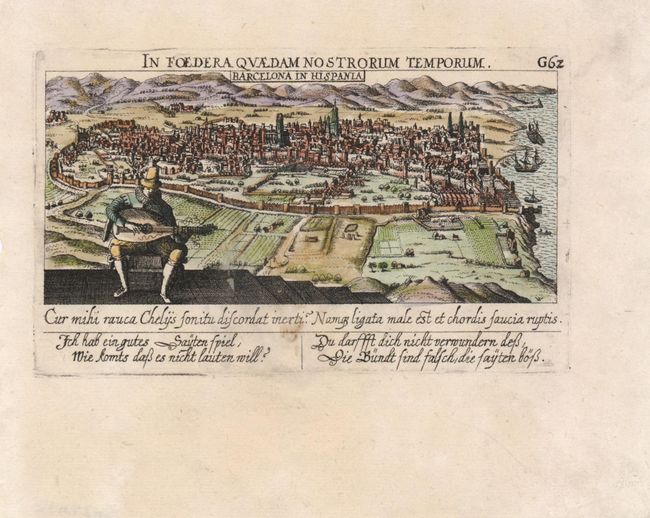 IN FŒDERA QVÆDAM NOSTRORUM TEMPORUM. G62
BARCELONA IN HISPANIA
Cur mihi rauca Chelijs sonitu discordat inerti? Namq, ligata male est et chordis saucia ruptis.
Ich hab ein gutes Saÿten spiel,
Wie komts daß es nicht lauten will?
Du darffft dich nicht verwundern deß,
Die Bündt sind falsch, die saÿten böß.